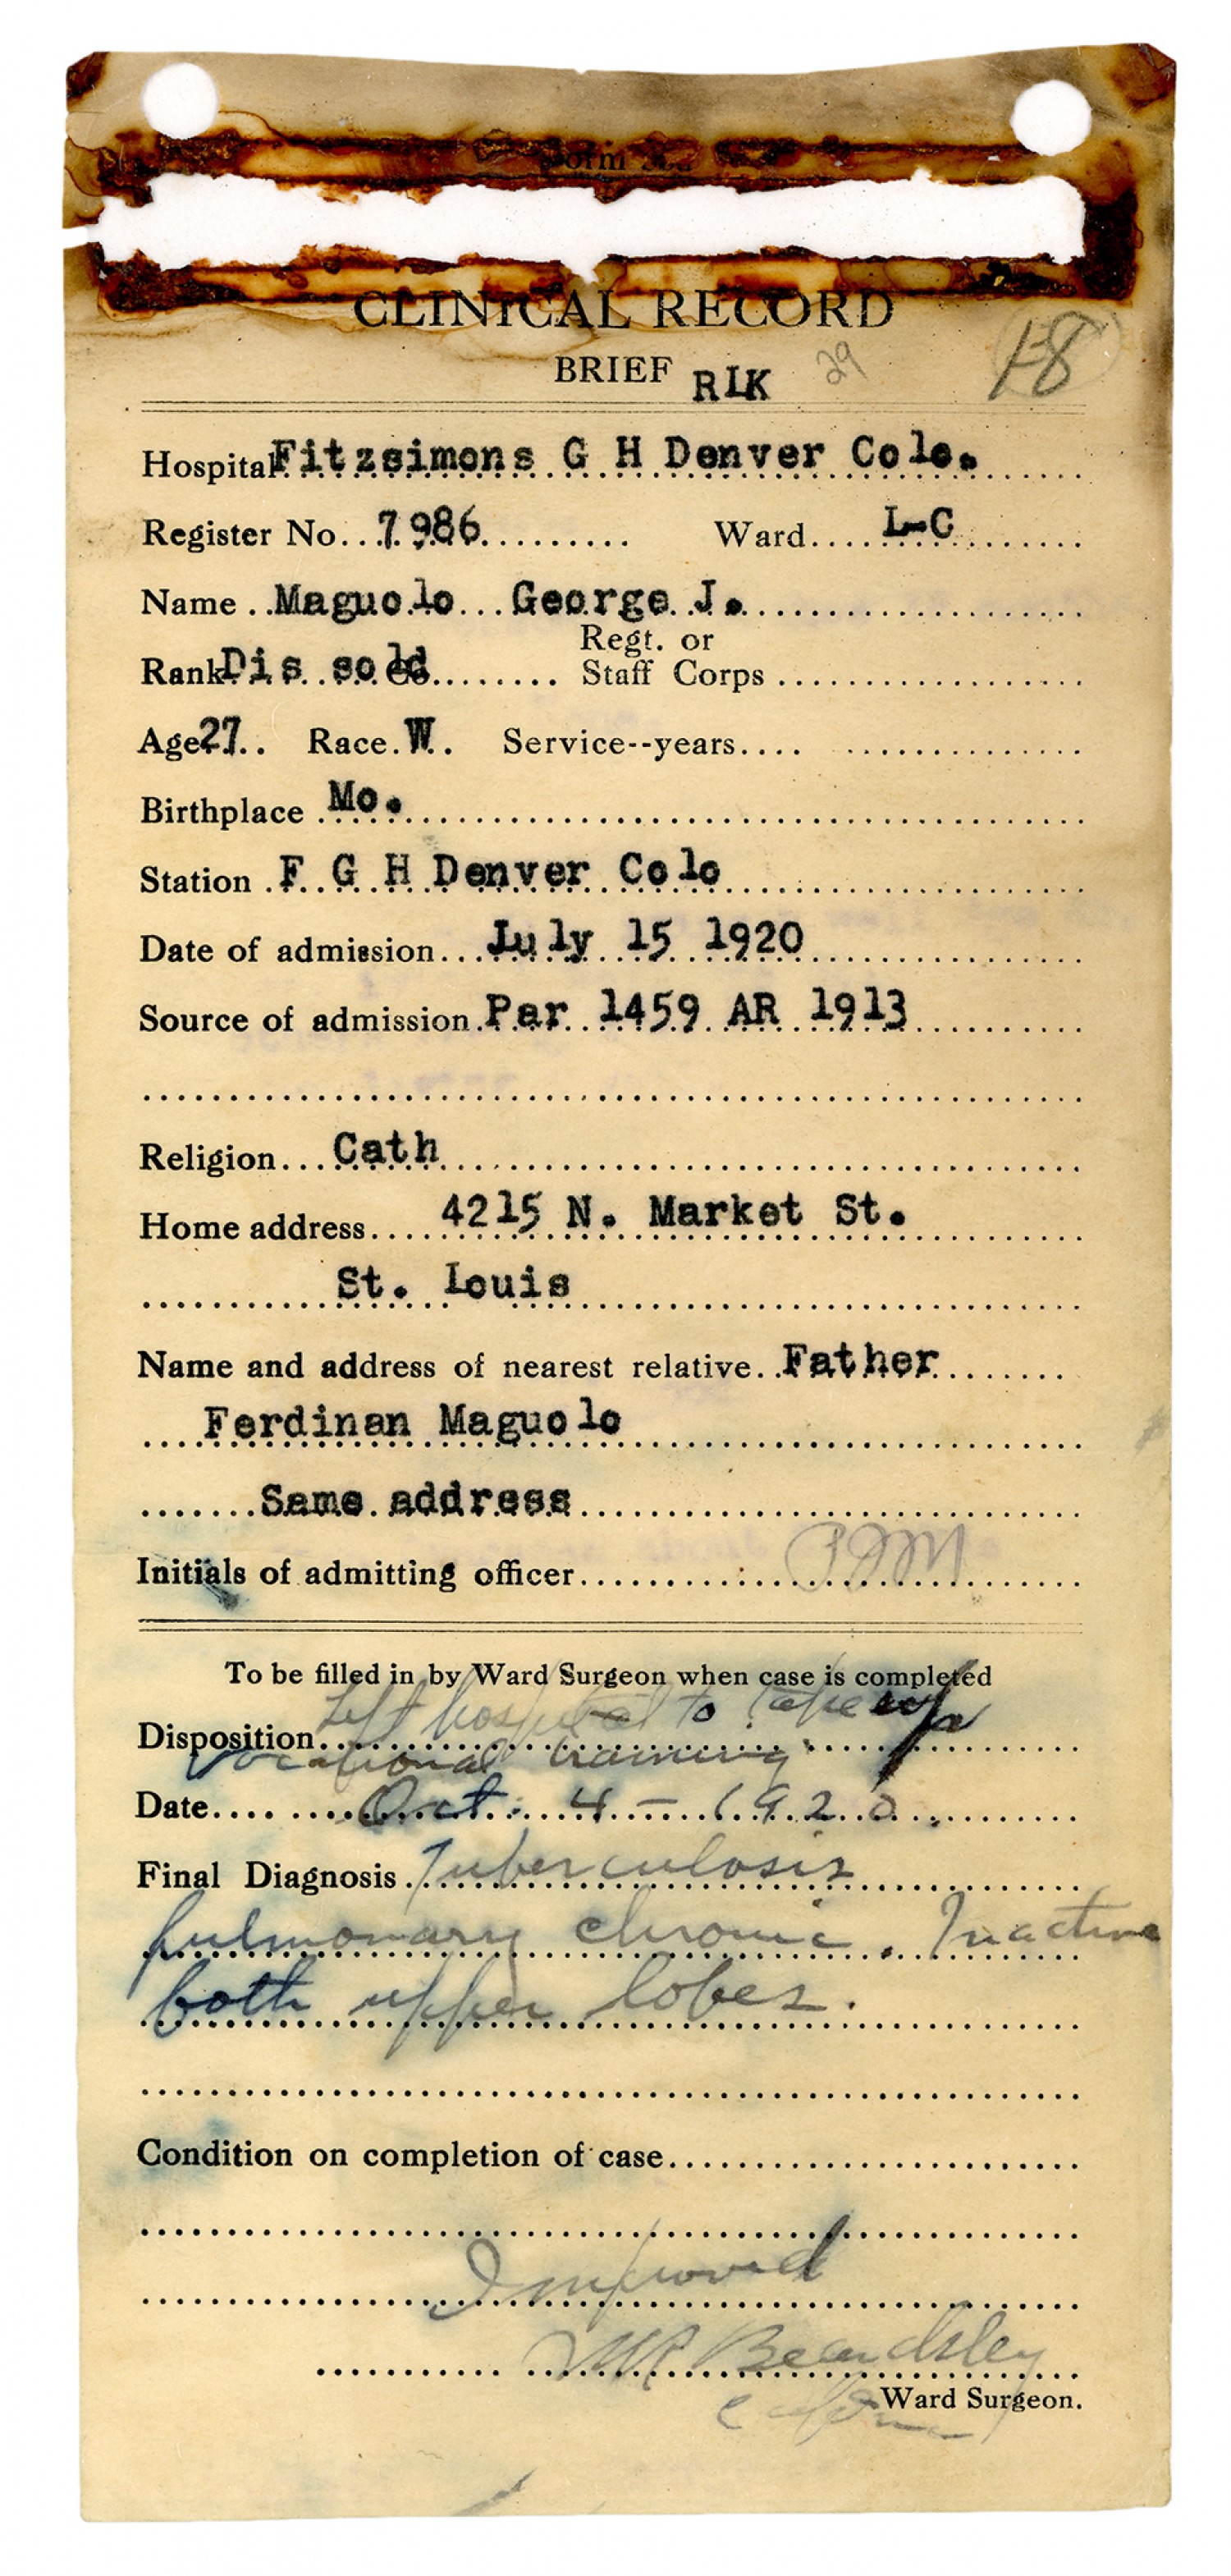 Form
CLINICAL RECORD
BRIEF RLK 29 18
Hospital Fitzsimons G H Denver Colo.
Register No. 7986 Ward L-C
Name Maguolo George J.
Rank Dis sold Regt. or Staff Corps
Age 27 Race W. Service--years
Birthplace Mo.
Station F G H Denver Colo
Date of admission July 15 1920
Source of admission Par 1459 AR 1913
Religion Cath
Home address 4215 N. Market St.
St. Louis
Name and address of nearest relative Father
Ferdinan Maguolo
Same address
Initials of admitting officer
To be filled in by Ward Surgeon when case is completed
Disposition Left hospital to take up
vocational training
Date Oct. 4 - 1920.
Final Diagnosis Tuberculosis
pulmonary chronic. Inactive
both upper lobes.
Condition on completion of case
Improved
MR Beardsley
Ward Surgeon.